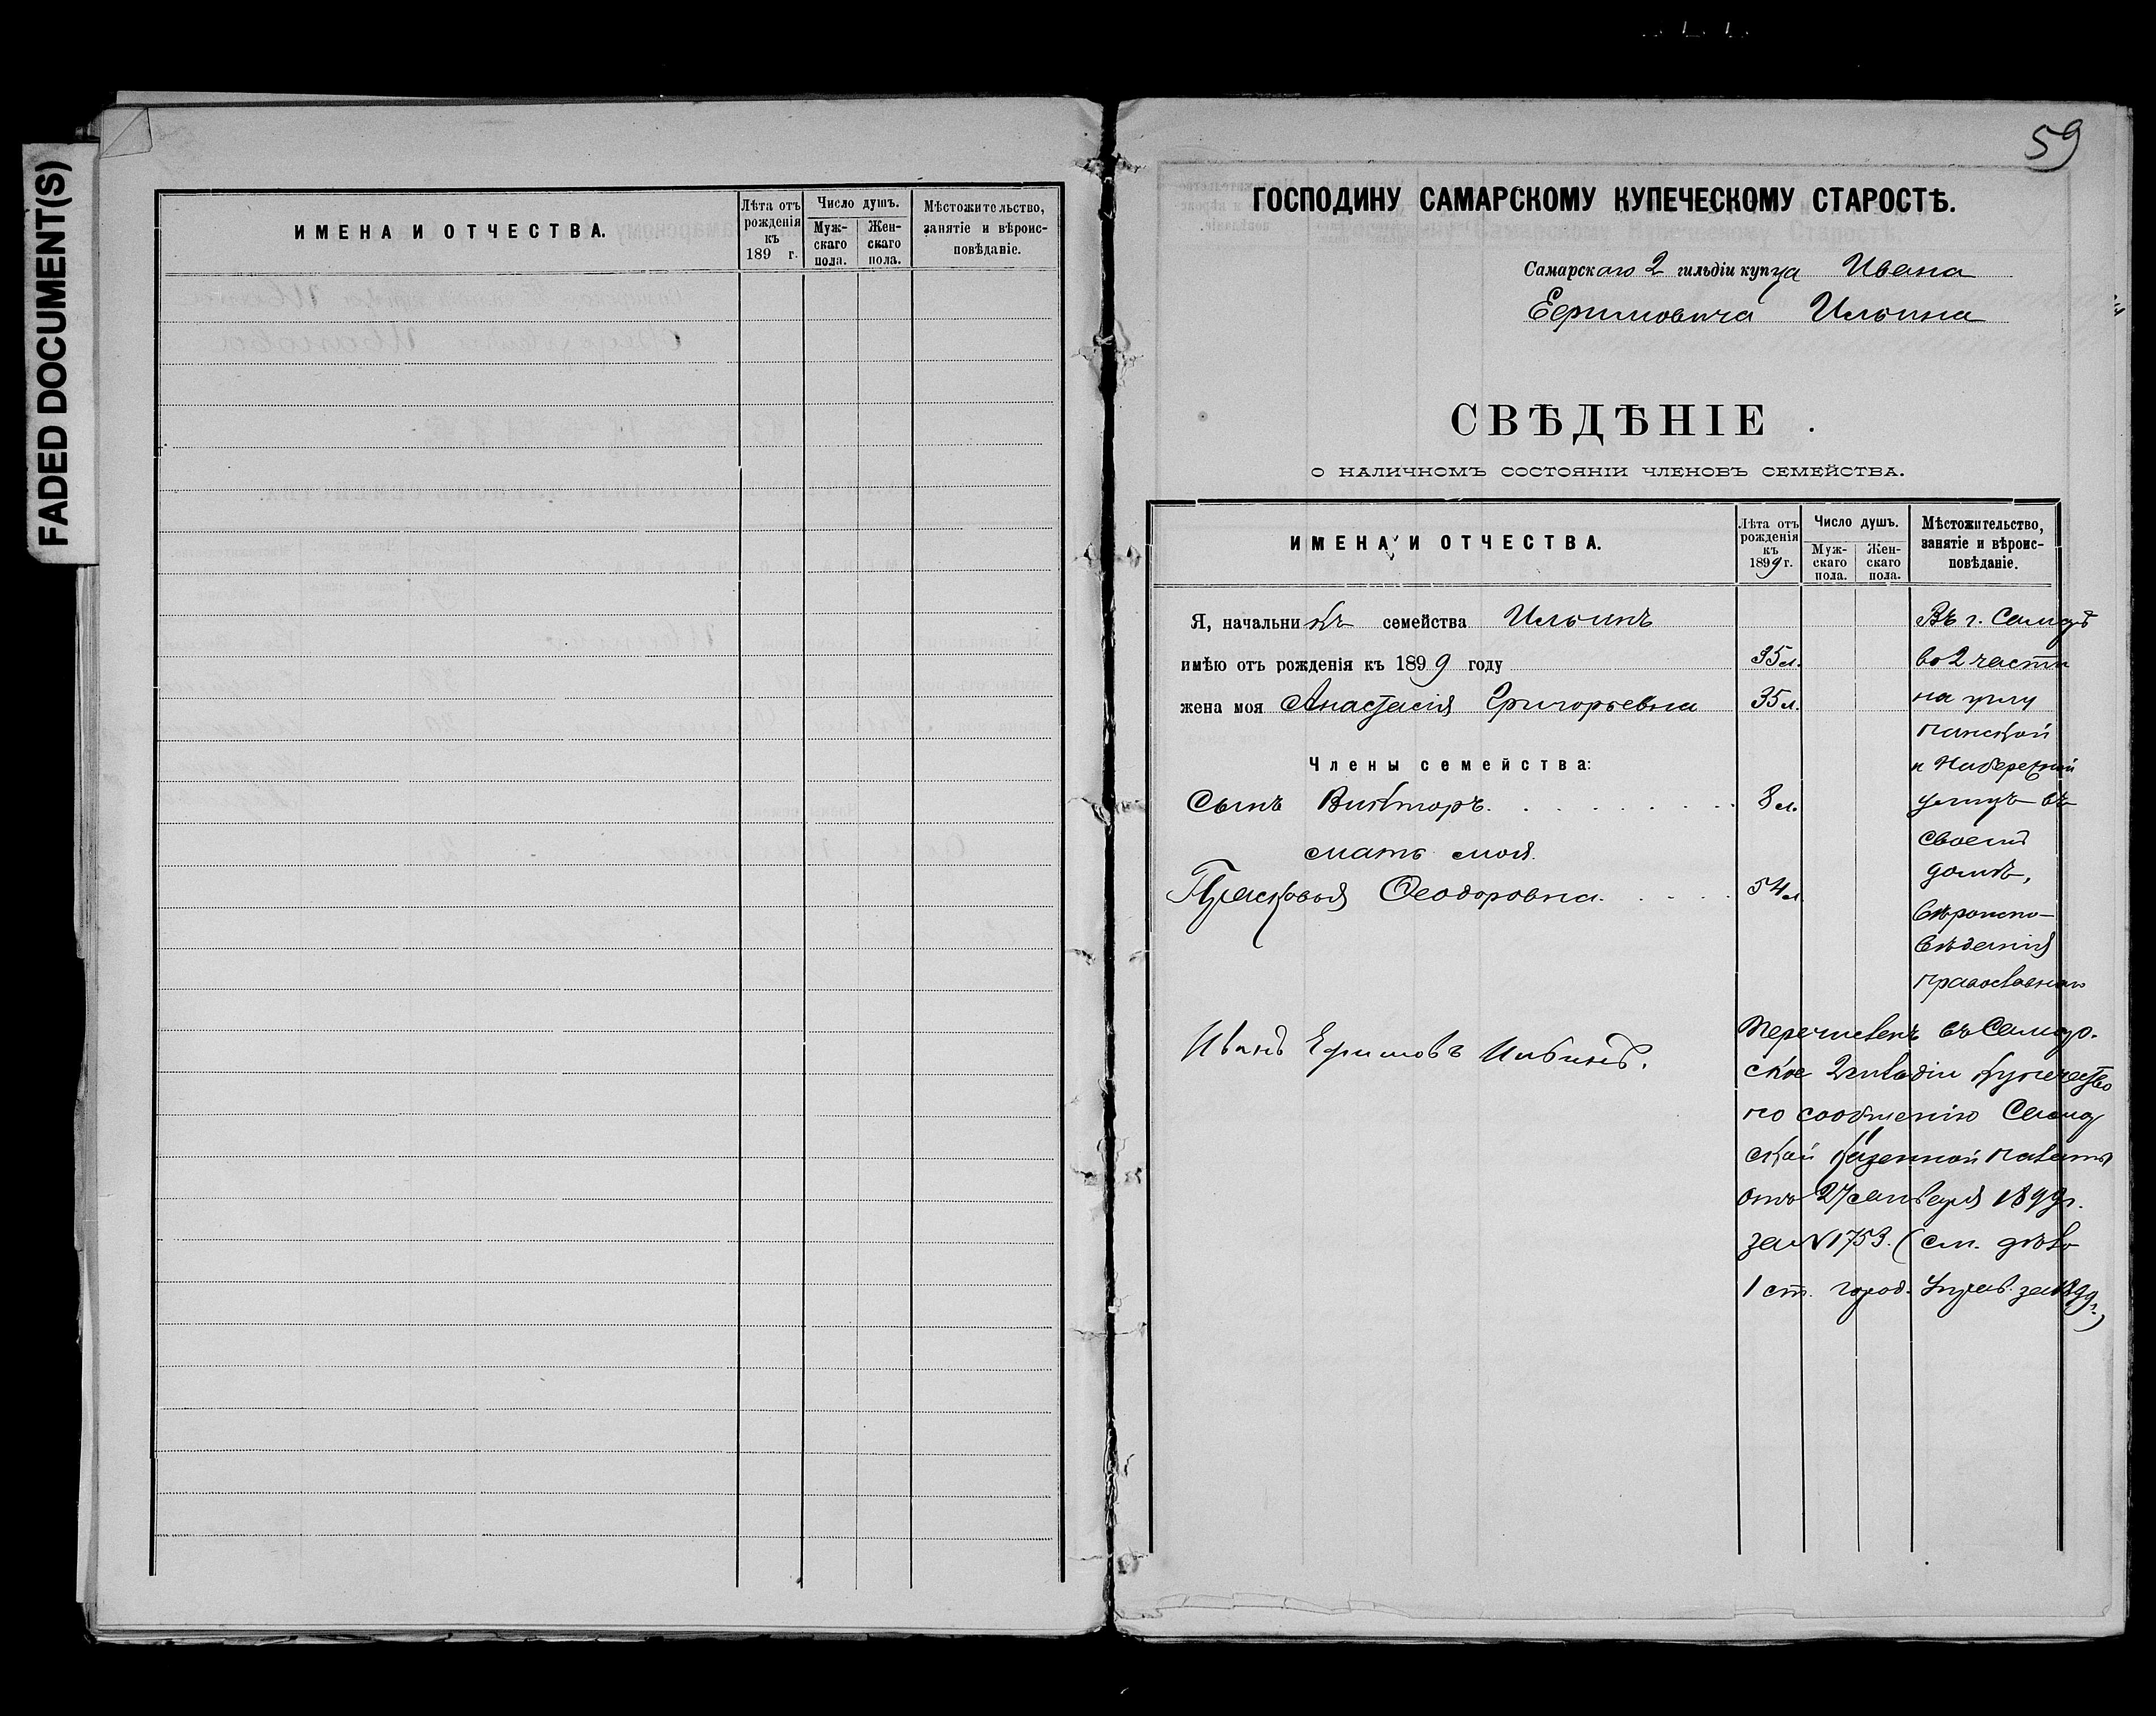 FADED DOCUMENT(S)
ИМЕНА И ОТЧЕСТВА.
Лѣта отъ рожденія къ 189 г.
Число душъ.
Муж-скаго пола.
Жен-скаго пола.
Мѣстожительство, занятіе и вѣроис-повѣданіе.
59
ГОСПОДИНУ САМАРСКОМУ КУПЕЧЕСКОМУ СТАРОСТѢ.
Самарскаго 2 гильдіи купца Ивана
Ефимовича Ильина
СВѢДѢНІЕ.
О НАЛИЧНОМЪ СОСТОЯНІИ ЧЛЕНОВЪ СЕМЕЙСТВА.
ИМЕНА И ОТЧЕСТВА.
Лѣта отъ рожденія къ 1899 г.
Число душъ.
Муж-скаго пола.
Жен-скаго пола.
Мѣстожительство, занятіе и вѣроис-повѣданіе.
Я, начальникъ семейства Ильинъ
имѣю отъ рожденія къ 1899 году 35 л.
жена моя Анастасія Григорьевна 35 л.
Члены семейства:
Сынъ Викторъ. 8 л.
мать моя
Прасковья Ѳеодоровна. 54 л.
Въ г. Самарѣ
во 2 части
на углу
панской
и Набережной
улицъ въ
своемъ
домѣ,
вѣроиспо-
вѣданія
православнаго
Иванъ Ефимовъ Ильинъ.
Перечисленъ въ Самар-
ское 2 гильдіи купечество
по сообщенію Самар
ской Казенной палаты
отъ 27 января 1899 г.
за № 1753. (см. дѣло
1 ст. город. Управ. за 1899 г.)